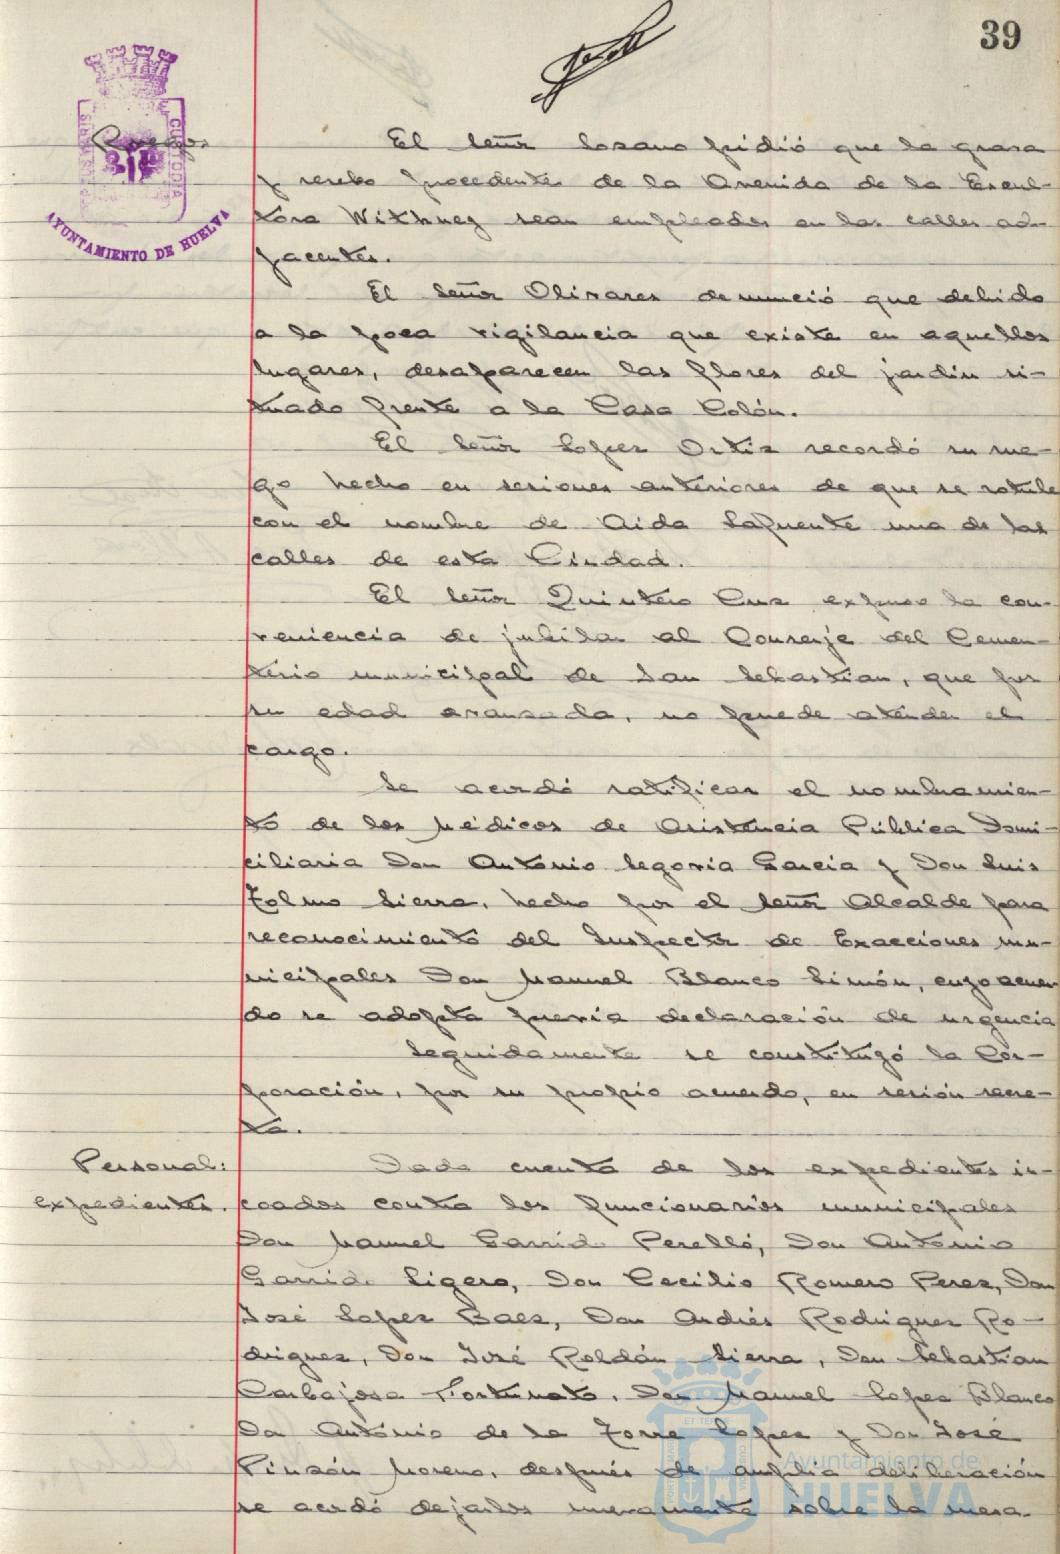 39
Ruegos
AYUNTAMIENTO DE HUELVA
El señor Lozano pidió que la grava
y recebo procedentes de la Avenida de la Escul-
tora Withney sean empleados en las calles ad-
yacentes.
El señor Olivares denunció que debido
a la poca vigilancia que existe en aquellos
lugares, desaparecen las flores del jardin si-
tuado frente a la Casa Colón.
El señor Lopez Ortiz recordó su rue-
go hecho en sesiones anteriores de que se rotule
con el nombre de Aida Lafuente una de las
calles de esta Ciudad.
El señor Quintero Cruz expuso la con-
veniencia de jubilar al Conserje del Cemen-
terio municipal de San Sebastian, que por
su edad avanzada, no puede atender el
cargo.
Se acordó ratificar el nombramien-
to de los Médicos de Asistencia Pública Domi-
ciliaria Don Antonio Segovia Garcia y Don Luis
Tolmo Sierra, hecho por el señor Alcalde para
reconocimiento del Inspector de Exacciones mu-
nicipales Don Manuel Blanco Simón, cuyo acuer-
do se adopta previa declaración de urgencia
Seguidamente se constituyó la Cor-
poración, por su propio acuerdo, en sesión secre-
ta.
Personal:
expedientes.
Dada cuenta de los expedientes in-
coados contra los funcionarios municipales
Don Manuel Garrido Perelló, Don Antonio
Garrido Ligero, Don Cecilio Romero Perez, Don
José Lopez Baez, Don Andrés Rodriguez Ro-
driguez, Don José Roldán Sierra, Don Sebastian
Carbajosa Fortunato, Don Manuel Lopez Blanco
Don Antonio de la Torre Lopez y Don José
Pinzón Moreno, después de amplia deliberación
se acordó dejarlos nuevamente sobre la mesa.
Ayuntamiento de
HUELVA